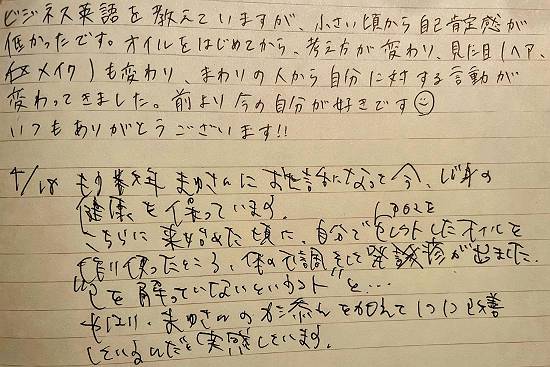 ビジネス英語を教えていますが、小さい頃から自己肯定感が
低かったです。オイルをはじめてから、考え方が変わり、見た目(ヘア、
メイク)も変わり、まわりの人から自分に対する言動が
変わってきました。前より今の自分が好きです☺
いつもありがとうございます!!
4/18 もう数年まゆさんにお世話になって今、心身の
健康を保っています。
こちらに来始めた頃に、自分で
オイルを
作り使ったところ、体の不調 そして発疹が出ました。
を解っていないというか、ト と…
やはり、まゆさんのお を加えて1つ1つ改善
しているんだと実感しています。